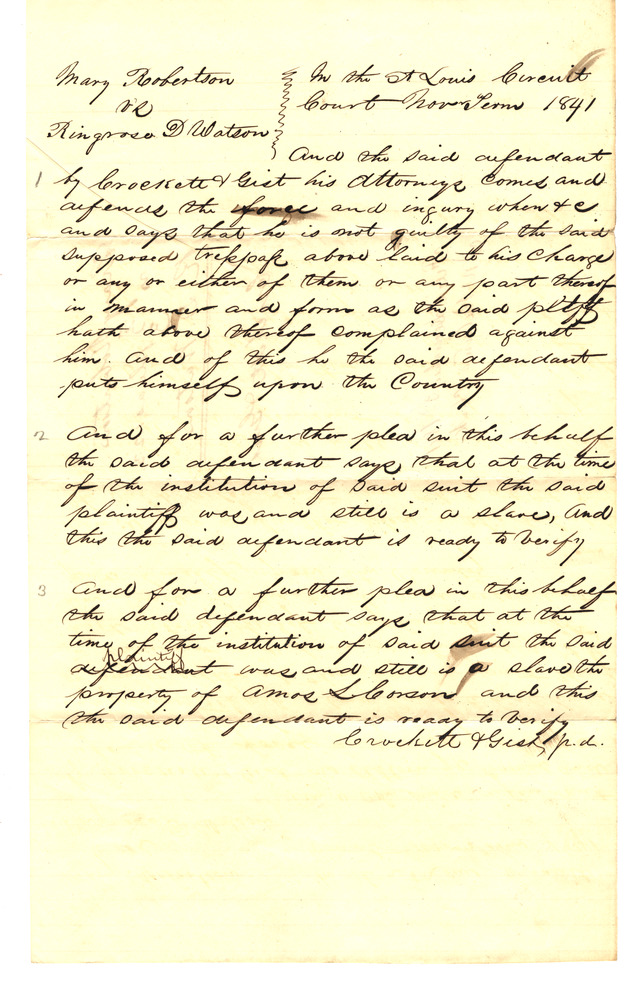 Mary Robertson
vs
Ringrose D Watson
In the St Louis Circuit
Court Nov Term 1841
And the said defendant
1 by Crockett & Gist his Attorneys comes and
defends the force and ingury when &c
and says that he is not guilty of the said
supposed trespass above laid to his charge
or any or either of them or any part thereof
in manner and form as the said pltff
hath above thereof complained against
him. And of this he the said defendant
puts himself upon the Country
2 And for a further plea in this behalf
the said defendant says that at the time
of the institution of said suit the said
plaintiff was and still is a slave, And
this the said defendant is ready to verify
3 And for a further plea in this behalf
the said defendant says that at the
time of the institution of said suit the said
plaintiff
defendant was and still is a slave the
property of Amos L Corson and this
the said defendant is ready to verify
Crockett & Gist, p.d.